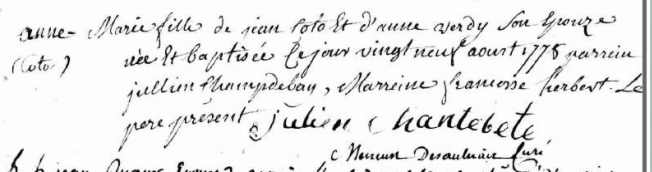 anne- Marie fille de jean Coto Et d'anne verdy Son Epouze
(Coto) née Et baptisée Le jour vingt neuf aoust 1778 parrein
jullien Champdebay, Marreine francoise herbert. Le
pere présent julien Chantebete
Desaulnais Curé